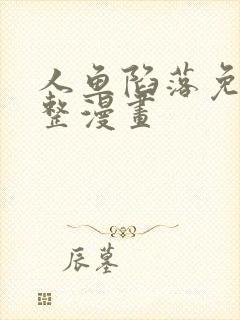 人鱼陷落免
整漫畫
辰墓